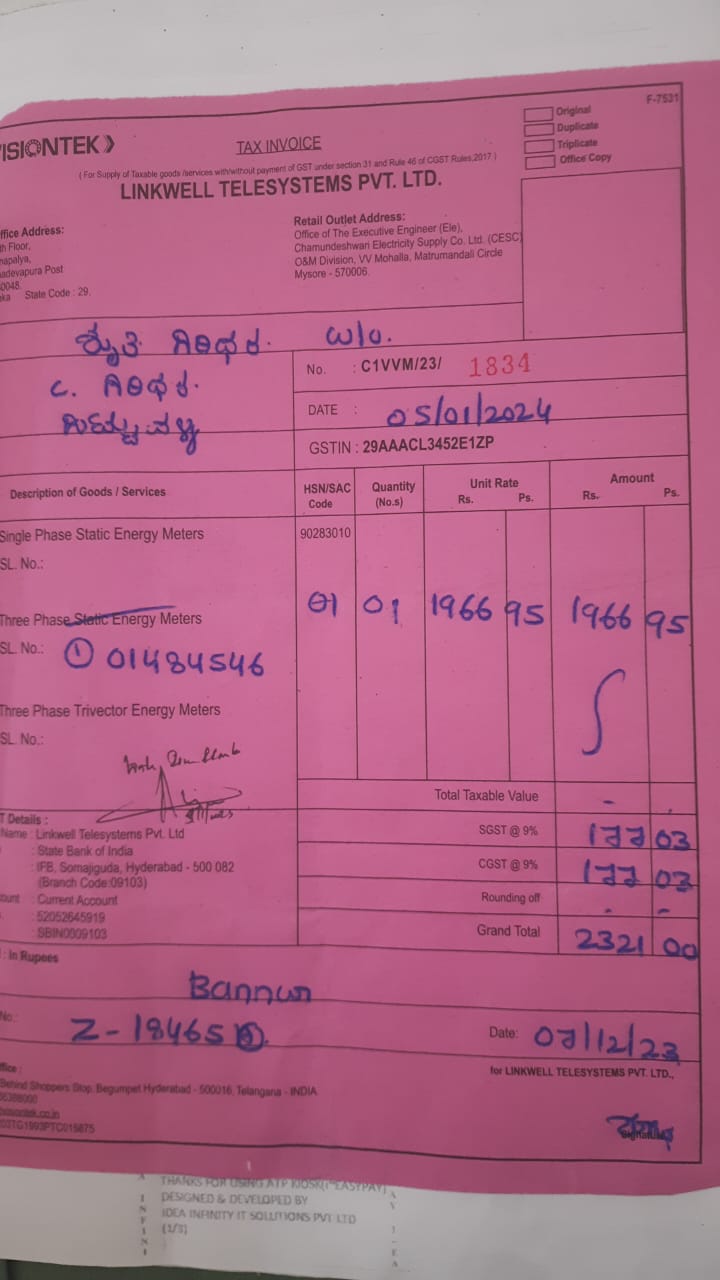 F-7531
Original
Duplicate
Triplicate
Office Copy
VISIONTEK
TAX INVOICE
( For Supply of Taxable goods /services with/without payment of GST under section 31 and Rule 46 of CGST Rules,2017 )
LINKWELL TELESYSTEMS PVT. LTD.
ffice Address:
th Floor,
napalya,
adevapura Post
0048.
ka State Code : 29.
Retail Outlet Address:
Office of The Executive Engineer (Ele),
Chamundeshwari Electricity Supply Co. Ltd. (CESC)
O&M Division, VV Mohalla, Matrumandali Circle
Mysore - 570006.
ಶೃತಿ ಗಿರಿಧರ. W/o.
C. ಗಿರಿಧರ.
No. : C1VVM/23/ 1834
DATE : 05/01/2024
GSTIN : 29AAACL3452E1ZP
Description of Goods / Services HSN/SAC Code Quantity (No.s) Unit Rate Rs. Ps. Amount Rs. Ps.
Single Phase Static Energy Meters 90283010
SL. No.:
Three Phase Static Energy Meters 01 01 1966 95 1966 95
SL. No.: ① 01484546
Three Phase Trivector Energy Meters
SL. No.:
Total Taxable Value -
SGST @ 9% 177 03
CGST @ 9% 177 03
Rounding off - -
Grand Total 2321 00
T Details :
Name : Linkwell Telesystems Pvt. Ltd
: State Bank of India
: IFB, Somajiguda, Hyderabad - 500 082
(Branch Code:09103)
ount : Current Account
: 52052645919
: SBIN0009103
: In Rupees
Bannur
No.: Z-18465
Date: 07/12/23
for LINKWELL TELESYSTEMS PVT. LTD.,
ffice :
Behind Shoppers Stop, Begumpet Hyderabad - 500016, Telangana - INDIA
Signature
THANKS FOR USING ATP KIOSK("EASYPAY)
DESIGNED & DEVELOPED BY
IDEA INFINITY IT SOLUTIONS PVT LTD
(1/3)